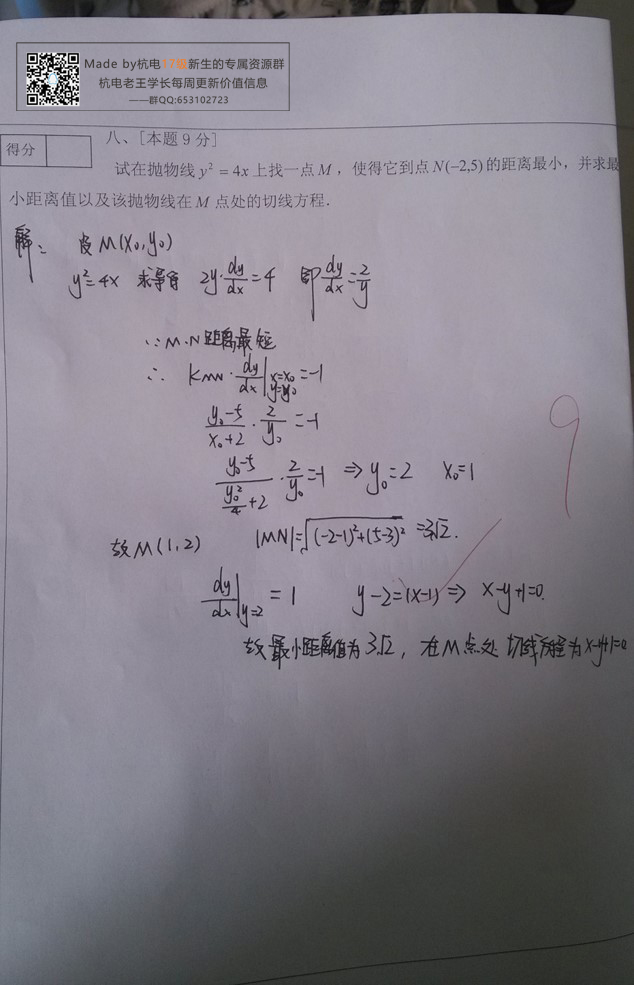 Made by杭电17级新生的专属资源群
杭电老王学长每周更新价值信息
——群QQ:653102723
得分
八、[本题9分]
试在抛物线 y² = 4x 上找一点 M，使得它到点 N(−2,5) 的距离最小，并求最
小距离值以及该抛物线在 M 点处的切线方程.
解: 设 M(x₀,y₀)
y²=4x 求导得 2y·dy/dx=4 即 dy/dx=2/y
∵ M.N 距离最短
∴ kMN·dy/dx|x=x₀ y=y₀ =-1
(y₀-5)/(x₀+2)·2/y₀=-1
(y₀-5)/(y₀²/4+2)·2/y₀=-1 ⇒ y₀=2 x₀=1
故 M(1,2) |MN|=√((-2-1)²+(5-3)²) =3√2.
dy/dx|y=2 = 1 y-2=(x-1) ⇒ x-y+1=0.
故最小距离值为3√2, 在M点处 切线方程为x-y+1=0
9